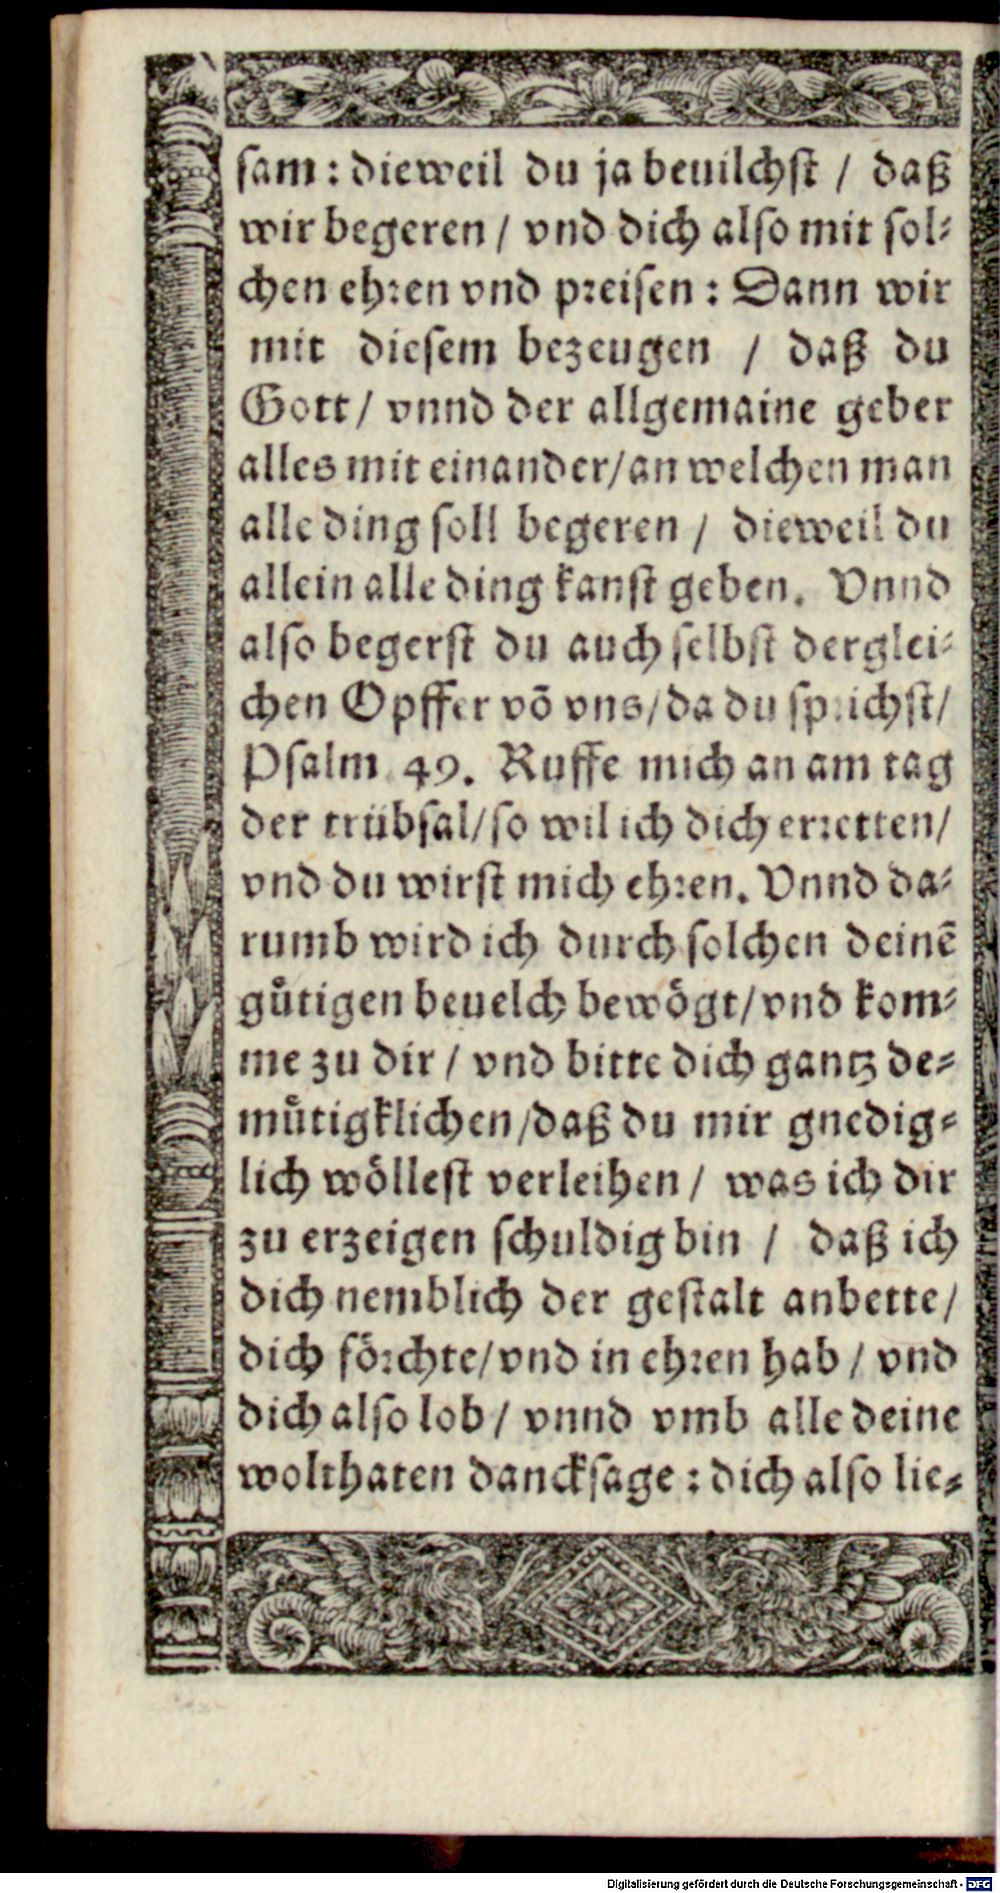 sam: dieweil du ja beuilchst / daß
wir begeren / vnd dich also mit sol⸗
chen ehren vnd preisen: Dann wir
mit diesem bezeugen / daß du
Gott / vnnd der allgemaine geber
alles mit einander / an welchen man
alle ding soll begeren / dieweil du
allein alle ding kanst geben. Vnnd
also begerst du auch selbst derglei⸗
chen Opffer võ vns / da du sprichst /
Psalm 49. Ruffe mich an am tag
der trübsal / so wil ich dich erretten /
vnd du wirst mich ehren. Vnnd da⸗
rumb wird ich durch solchen deinẽ
gütigen beuelch bewögt / vnd kom⸗
me zu dir / vnd bitte dich gantz de⸗
mütigklichen / daß du mir gnedig⸗
lich wöllest verleihen / was ich dir
zu erzeigen schuldig bin / daß ich
dich nemblich der gestalt anbette /
dich förchte / vnd in ehren hab / vnd
dich also lob / vnnd vmb alle deine
wolthaten dancksage: dich also lie⸗
Digitalisierung gefördert durch die Deutsche Forschungsgemeinschaft - DFG